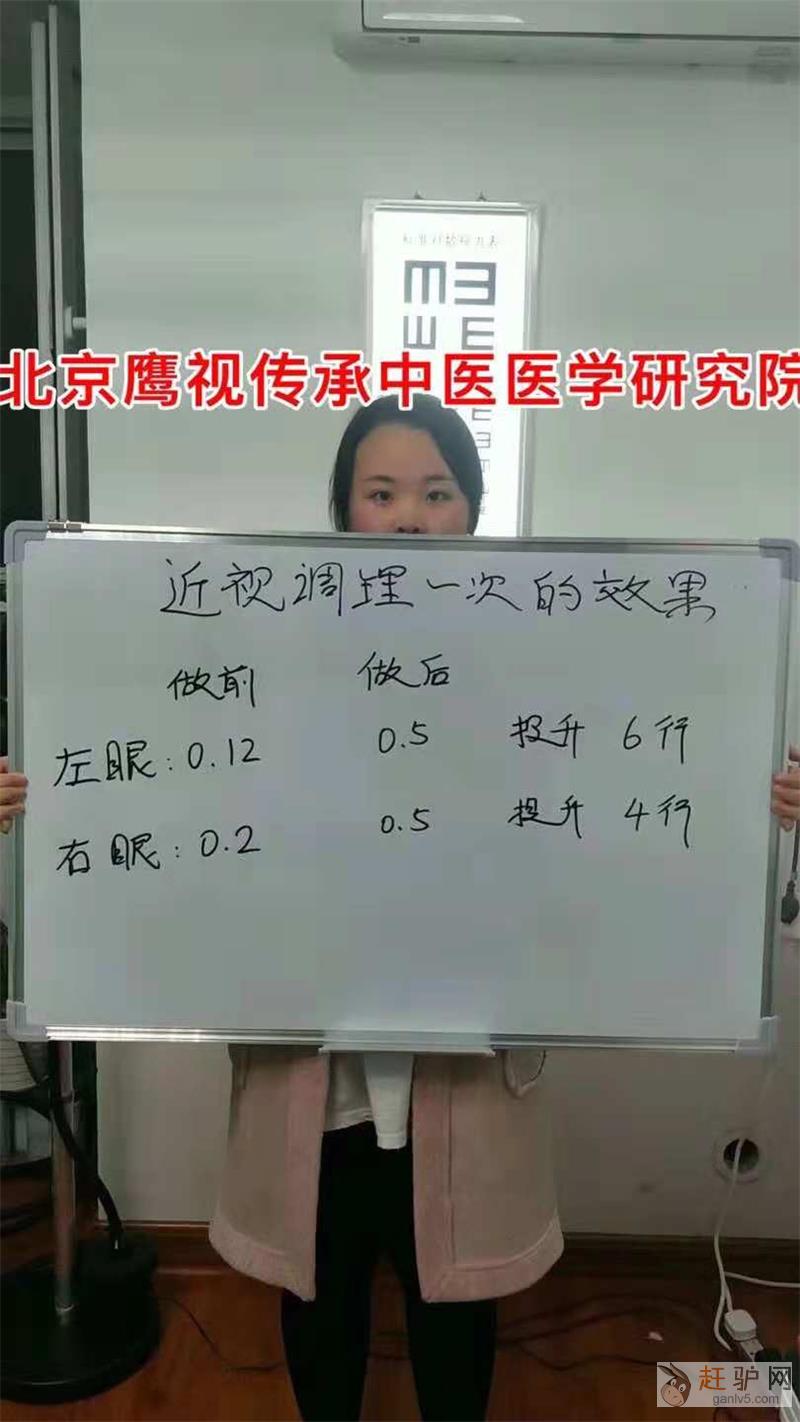 标准对数视力表
北京鹰视传承中医医学研究院
近视调理一次的效果
做前 做后
左眼：0.12 0.5 提升 6行
右眼：0.2 0.5 提升 4行
赶驴网
ganlv5.com